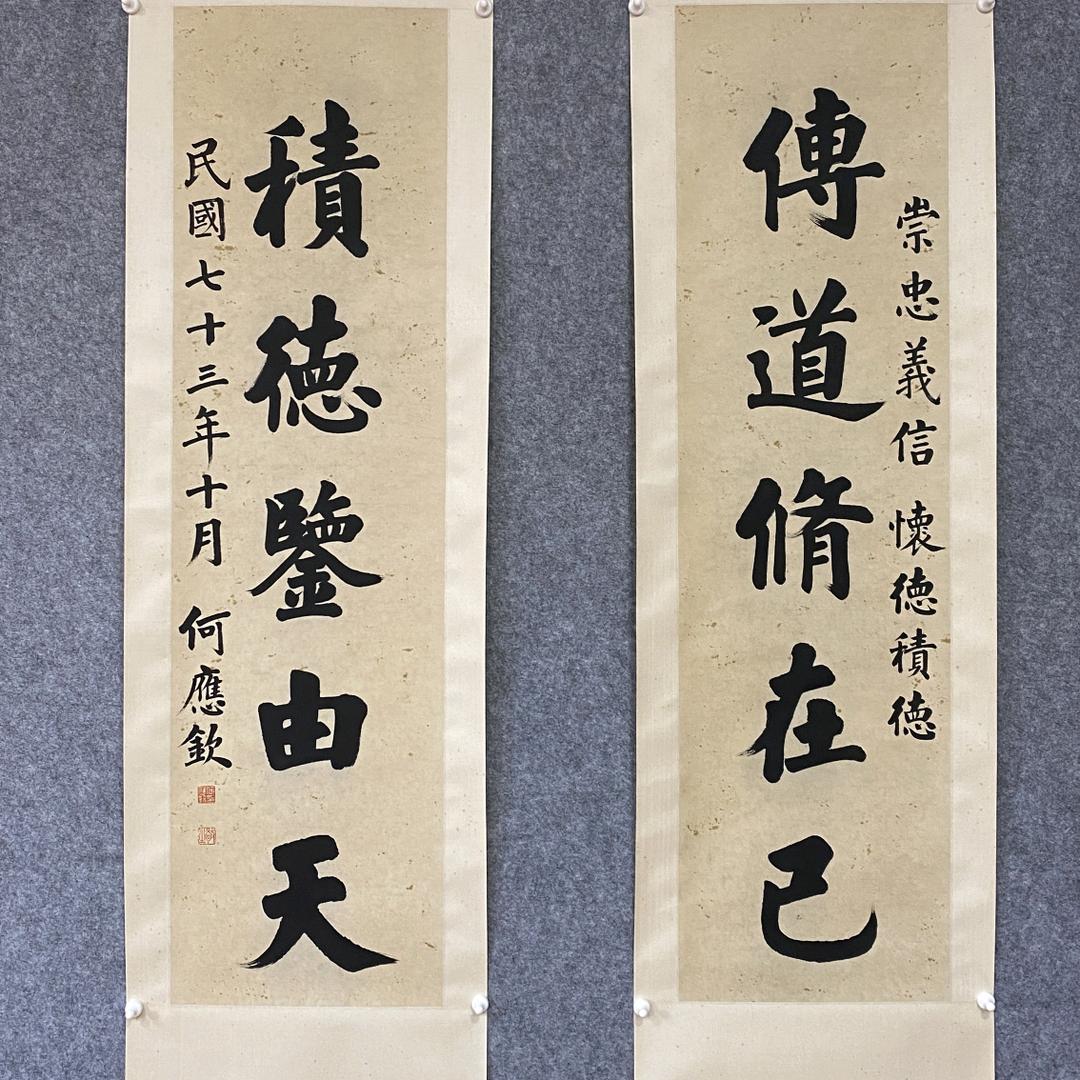 崇忠義信 懷德積德
傳道脩在己
積德鑒由天
民國七十三年十月 何應欽